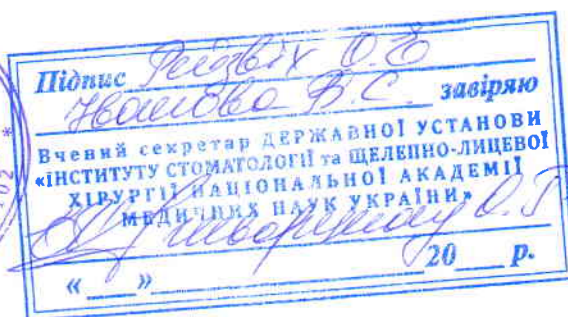 Підпис Рейзвіх О.Е
Іванова В.С. завіряю
Вчений секретар ДЕРЖАВНОЇ УСТАНОВИ
«ІНСТИТУТУ СТОМАТОЛОГІЇ та ЩЕЛЕПНО-ЛИЦЕВОЇ
ХІРУРГІЇ НАЦІОНАЛЬНОЇ АКАДЕМІЇ
МЕДИЧНИХ НАУК УКРАЇНИ»
О.Г
« » 20 р.
102 *